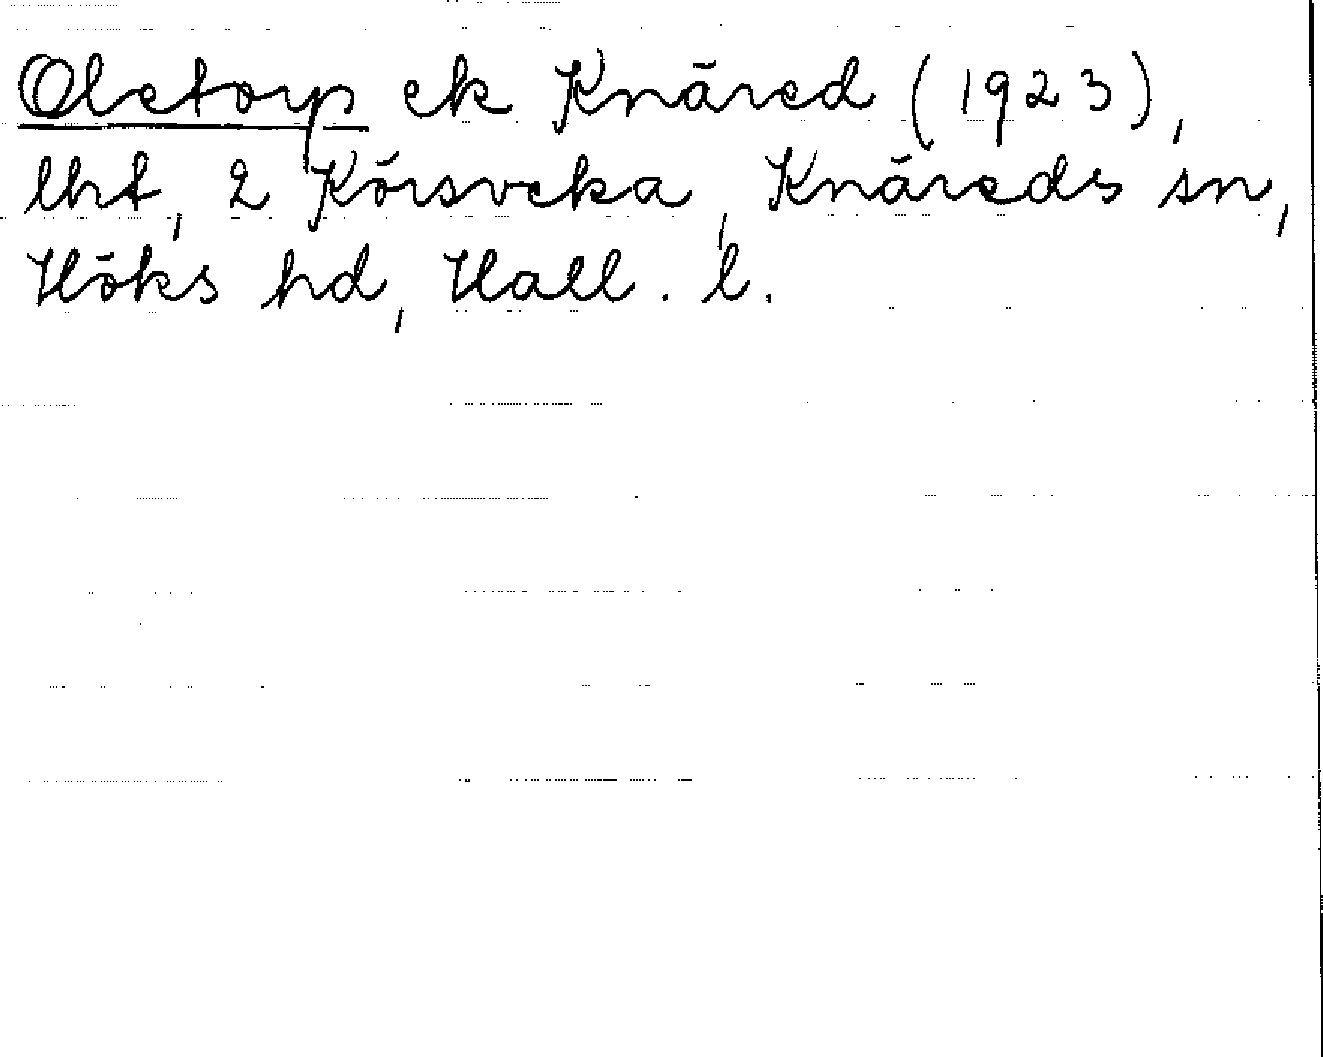 Oletorp ek Knäred (1923),
lht, 2 Körsveka, Knäreds sn,
Höks hd, Hall. l.